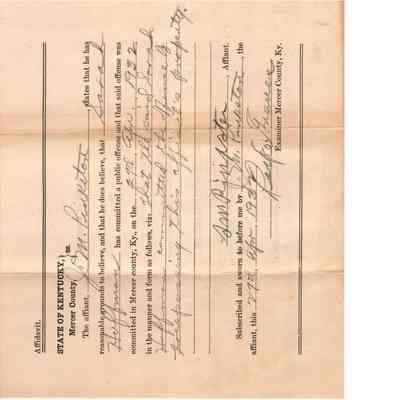 Affidavit.
STATE OF KENTUCKY,
Mercer County, Sct.
The affiant, J. M. Pinkston, states that he has
reasonable grounds to believe, and that he does believe, that Sarah
Huffman has committed a public offense and that said offense was
committed in Mercer county, Ky., on the 2nd Apr. 1932
in the manner and form as follows, viz: that the said Sarah
Huffman committed the offense of
trespassing this affiant's property.
J M Pinkston, Affiant.
Subscribed and sworn to before me by J. M. Pinkston, the
affiant, this 2nd, Apr. 1932
Examiner Mercer County, Ky.